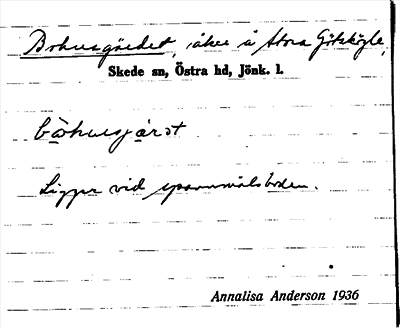 Bohusgärdet, åker å Stora Götestögle,
Skede sn, Östra hd, Jönk. l.
bòhusjärst
Ligger vid spannmålsboden.
Annalisa Anderson 1936